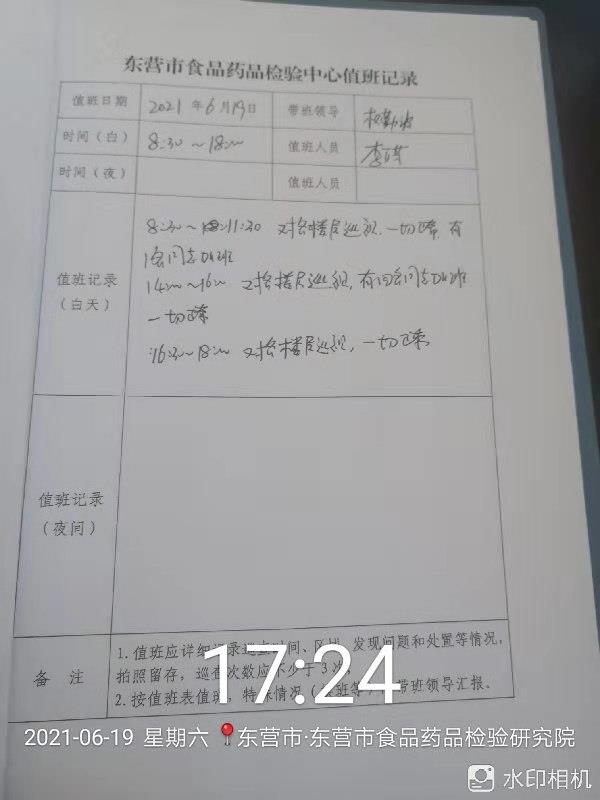 东营市食品药品检验中心值班记录
值班日期 2021年6月19日 带班领导
时间（白） 8:30～18:00 值班人员
时间（夜） 值班人员
值班记录（白天）
8:30～11:30 对各楼层巡视，一切正常，有
同志加班
14:00～16:00 对各楼层巡视，有同志加班
一切正常
16:30～18:00 对各楼层巡视，一切正常。
值班记录（夜间）
备 注
1. 值班应详细记录巡查时间、区域、发现问题和处置等情况，
拍照留存，巡查次数应不少于3次
2. 按值班表值班，特殊情况 带班领导汇报。
17:24
2021-06-19 星期六 东营市·东营市食品药品检验研究院
水印相机